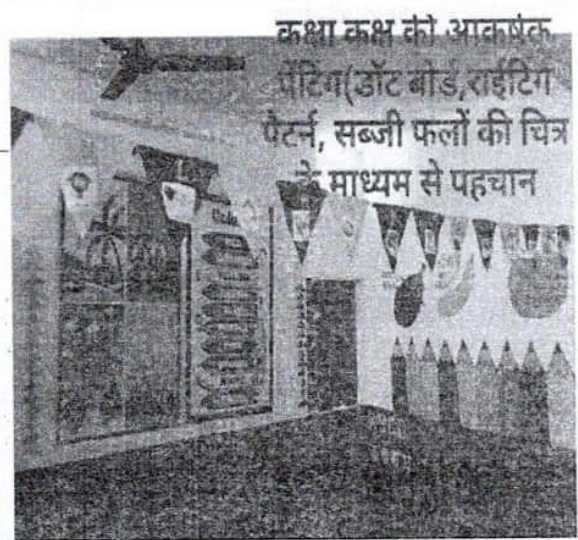 कक्षा कक्ष की आकर्षक
पेंटिग(डॉट बोर्ड,राईटिग
पैटर्न, सब्जी फलों की चित्र
के माध्यम से पहचान